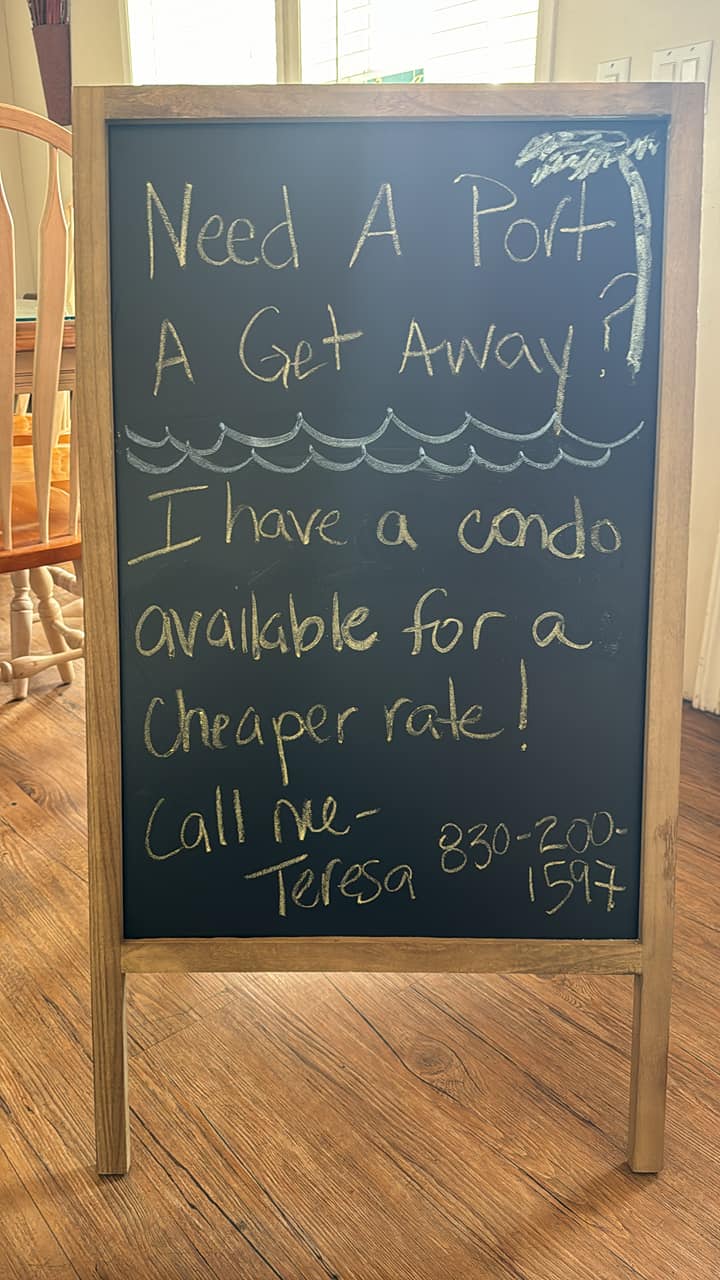 Need A Port
A Get Away?
I have a condo
available for a
cheaper rate!
Call me-
Teresa 830-200-
1597